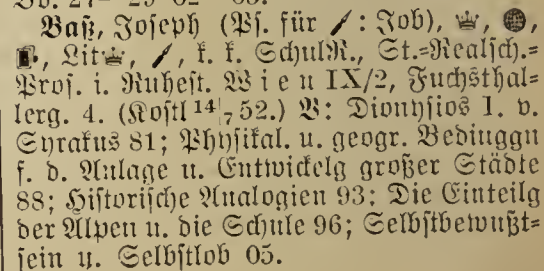 Baß, Joseph (Ps. für : Job),
Lit , k. k. SchulR., St.=Realsch.=
Prof. i. Ruhest. Wien IX/2, Fuchsthal=
lerg. 4. (Kostl 14/7 52.) V: Dionysios I. v.
Syrakus 81; Physikal. u. geogr. Bedinggn
f. d. Anlage u. Entwickelg großer Städte
88; Historische Analogien 93; Die Einteilg
der Alpen u. die Schule 96; Selbstbewußt=
sein u. Selbstlob 05.